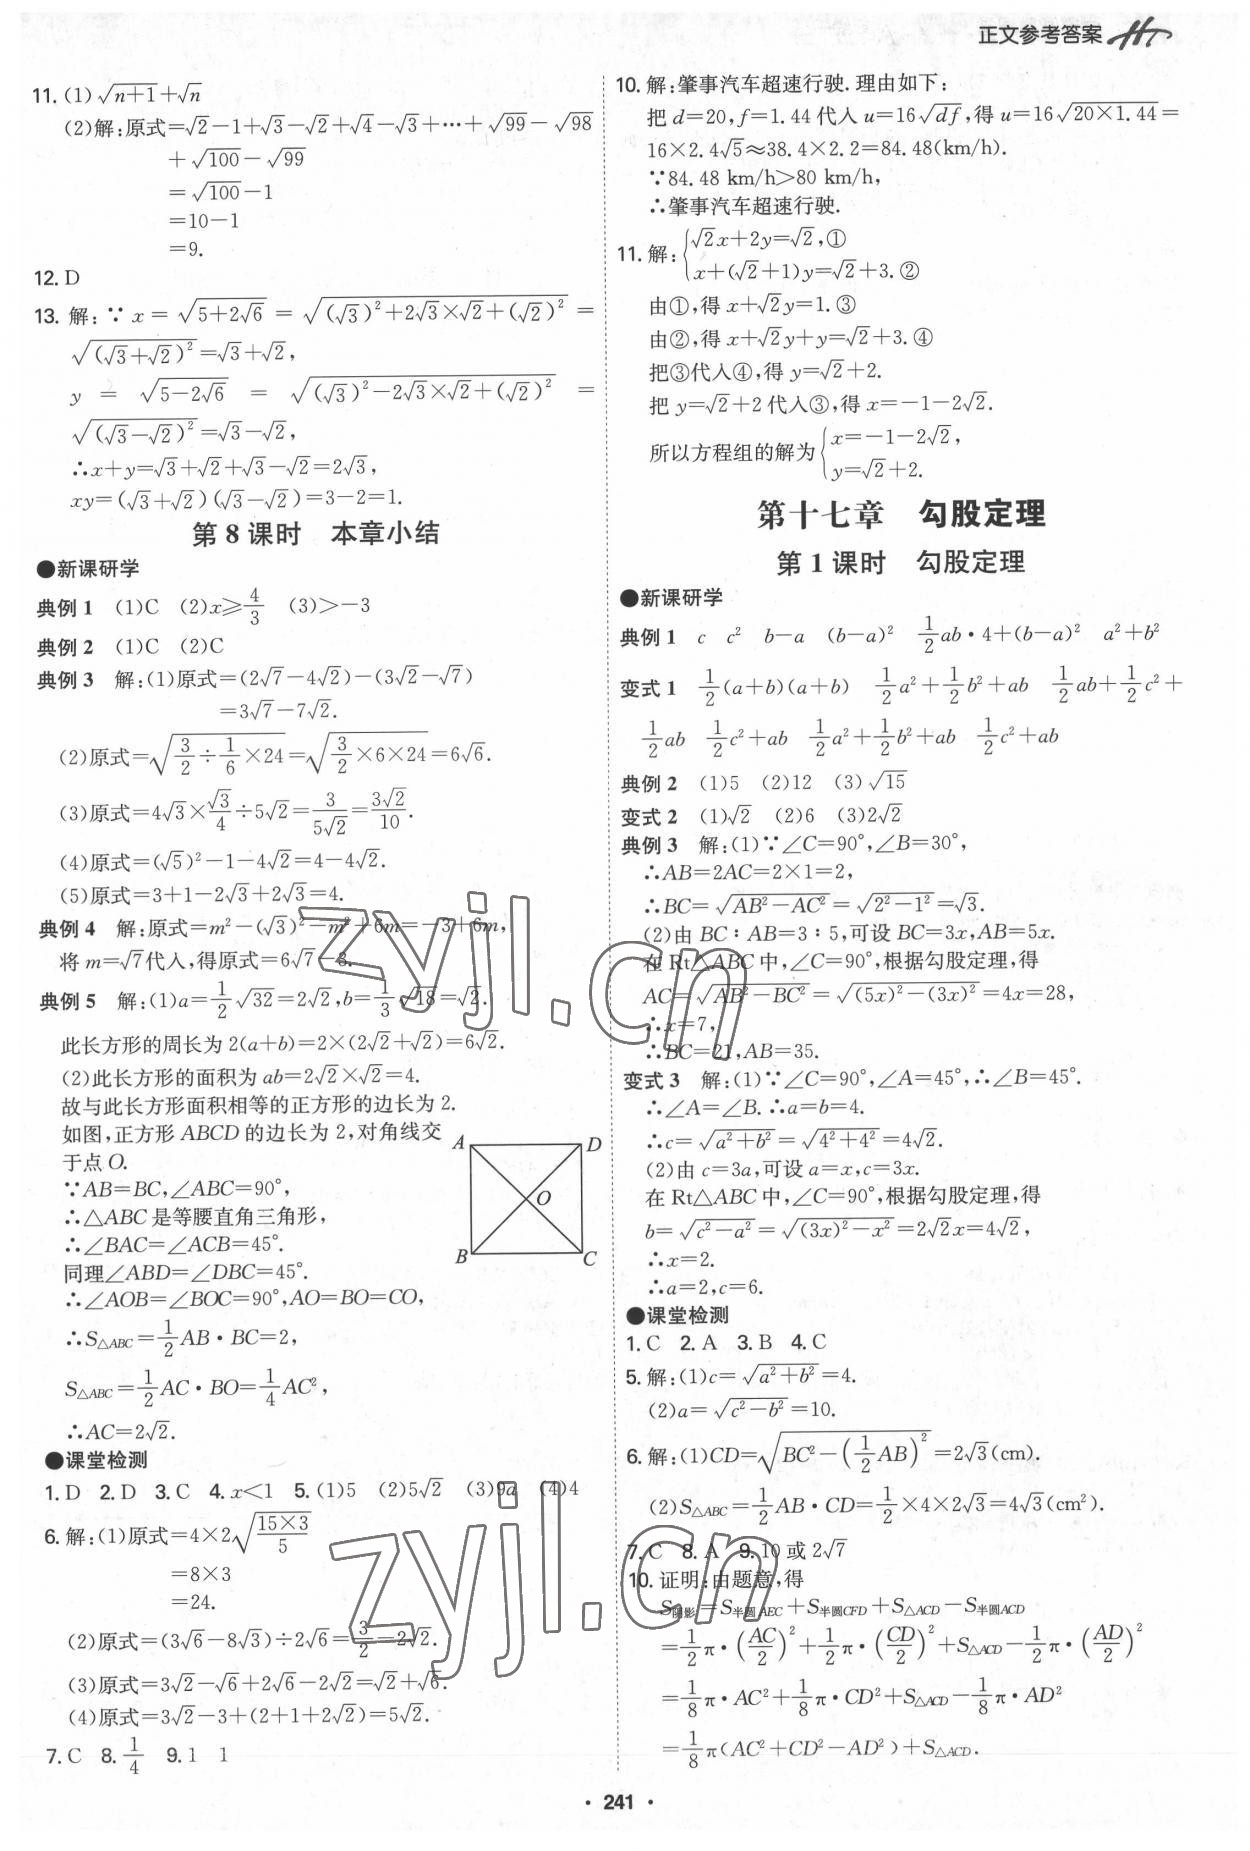 正文参考答案
11. (1) √(n+1)+√n
(2)解:原式=√2-1+√3-√2+√4-√3+⋯+√99-√98
+√100-√99
=√100-1
=10-1
=9.
12. D
13. 解:∵x=√(5+2√6)=√((√3)²+2√3×√2+(√2)²)=
√((√3+√2)²)=√3+√2,
y=√(5-2√6)=√((√3)²-2√3×√2+(√2)²)=
√((√3-√2)²)=√3-√2,
∴x+y=√3+√2+√3-√2=2√3,
xy=(√3+√2)(√3-√2)=3-2=1.
第8课时 本章小结
●新课研学
典例1 (1)C (2)x≥4/3 (3)>-3
典例2 (1)C (2)C
典例3 解:(1)原式=(2√7-4√2)-(3√2-√7)
=3√7-7√2.
(2)原式=√(3/2÷1/6×24)=√(3/2×6×24)=6√6.
(3)原式=4√3×√3/4÷5√2=3/(5√2)=3√2/10.
(4)原式=(√5)²-1-4√2=4-4√2.
(5)原式=3+1-2√3+2√3=4.
典例4 解:原式=m²-(√3)²-m²+6m=-3+6m,
将m=√7代入,得原式=6√7-3.
典例5 解:(1)a=1/2√32=2√2,b=1/3√18=√2.
此长方形的周长为2(a+b)=2×(2√2+√2)=6√2.
(2)此长方形的面积为ab=2√2×√2=4.
故与此长方形面积相等的正方形的边长为2.
如图,正方形ABCD的边长为2,对角线交
于点O.
∵AB=BC,∠ABC=90°,
∴△ABC是等腰直角三角形,
∴∠BAC=∠ACB=45°.
同理∠ABD=∠DBC=45°.
∴∠AOB=∠BOC=90°,AO=BO=CO,
∴S△ABC=1/2AB·BC=2,
S△ABC=1/2AC·BO=1/4AC²,
∴AC=2√2.
A D
O
B C
●课堂检测
1. D 2. D 3. C 4. x<1 5. (1)5 (2)5√2 (3)9a (4)4
6. 解:(1)原式=4×2√(15×3/5)
=8×3
=24.
(2)原式=(3√6-8√3)÷2√6=3/2-2√2.
(3)原式=3√2-√6+2√6-2√2=√2+√6.
(4)原式=3√2-3+(2+1+2√2)=5√2.
7. C 8. 1/4 9. 1 1
10. 解:肇事汽车超速行驶.理由如下:
把d=20,f=1.44代入u=16√(df),得u=16√(20×1.44)=
16×2.4√5≈38.4×2.2=84.48(km/h).
∵84.48 km/h>80 km/h,
∴肇事汽车超速行驶.
11. 解:{√2x+2y=√2,①
x+(√2+1)y=√2+3.②
由①,得x+√2y=1.③
由②,得x+√2y+y=√2+3.④
把③代入④,得y=√2+2.
把y=√2+2代入③,得x=-1-2√2.
所以方程组的解为{x=-1-2√2,
y=√2+2.
第十七章 勾股定理
第1课时 勾股定理
●新课研学
典例1 c c² b-a (b-a)² 1/2ab·4+(b-a)² a²+b²
变式1 1/2(a+b)(a+b) 1/2a²+1/2b²+ab 1/2ab+1/2c²+
1/2ab 1/2c²+ab 1/2a²+1/2b²+ab=1/2c²+ab
典例2 (1)5 (2)12 (3)√15
变式2 (1)√2 (2)6 (3)2√2
典例3 解:(1)∵∠C=90°,∠B=30°,
∴AB=2AC=2×1=2,
∴BC=√(AB²-AC²)=√(2²-1²)=√3.
(2)由BC∶AB=3∶5,可设BC=3x,AB=5x.
在Rt△ABC中,∠C=90°,根据勾股定理,得
AC=√(AB²-BC²)=√((5x)²-(3x)²)=4x=28,
∴x=7,
∴BC=21,AB=35.
变式3 解:(1)∵∠C=90°,∠A=45°,∴∠B=45°.
∴∠A=∠B.∴a=b=4.
∴c=√(a²+b²)=√(4²+4²)=4√2.
(2)由c=3a,可设a=x,c=3x.
在Rt△ABC中,∠C=90°,根据勾股定理,得
b=√(c²-a²)=√((3x)²-x²)=2√2x=4√2,
∴x=2.
∴a=2,c=6.
●课堂检测
1. C 2. A 3. B 4. C
5. 解:(1)c=√(a²+b²)=4.
(2)a=√(c²-b²)=10.
6. 解:(1)CD=√(BC²-(1/2AB)²)=2√3(cm).
(2)S△ABC=1/2AB·CD=1/2×4×2√3=4√3(cm²).
7. C 8. A 9. 10或2√7
10. 证明:由题意,得
S阴影=S半圆AEC+S半圆CFD+S△ACD-S半圆ACD
=1/2π·(AC/2)²+1/2π·(CD/2)²+S△ACD-1/2π·(AD/2)²
=1/8π·AC²+1/8π·CD²+S△ACD-1/8π·AD²
=1/8π(AC²+CD²-AD²)+S△ACD.
· 241 ·
zyjl.cn
zyjl.cn